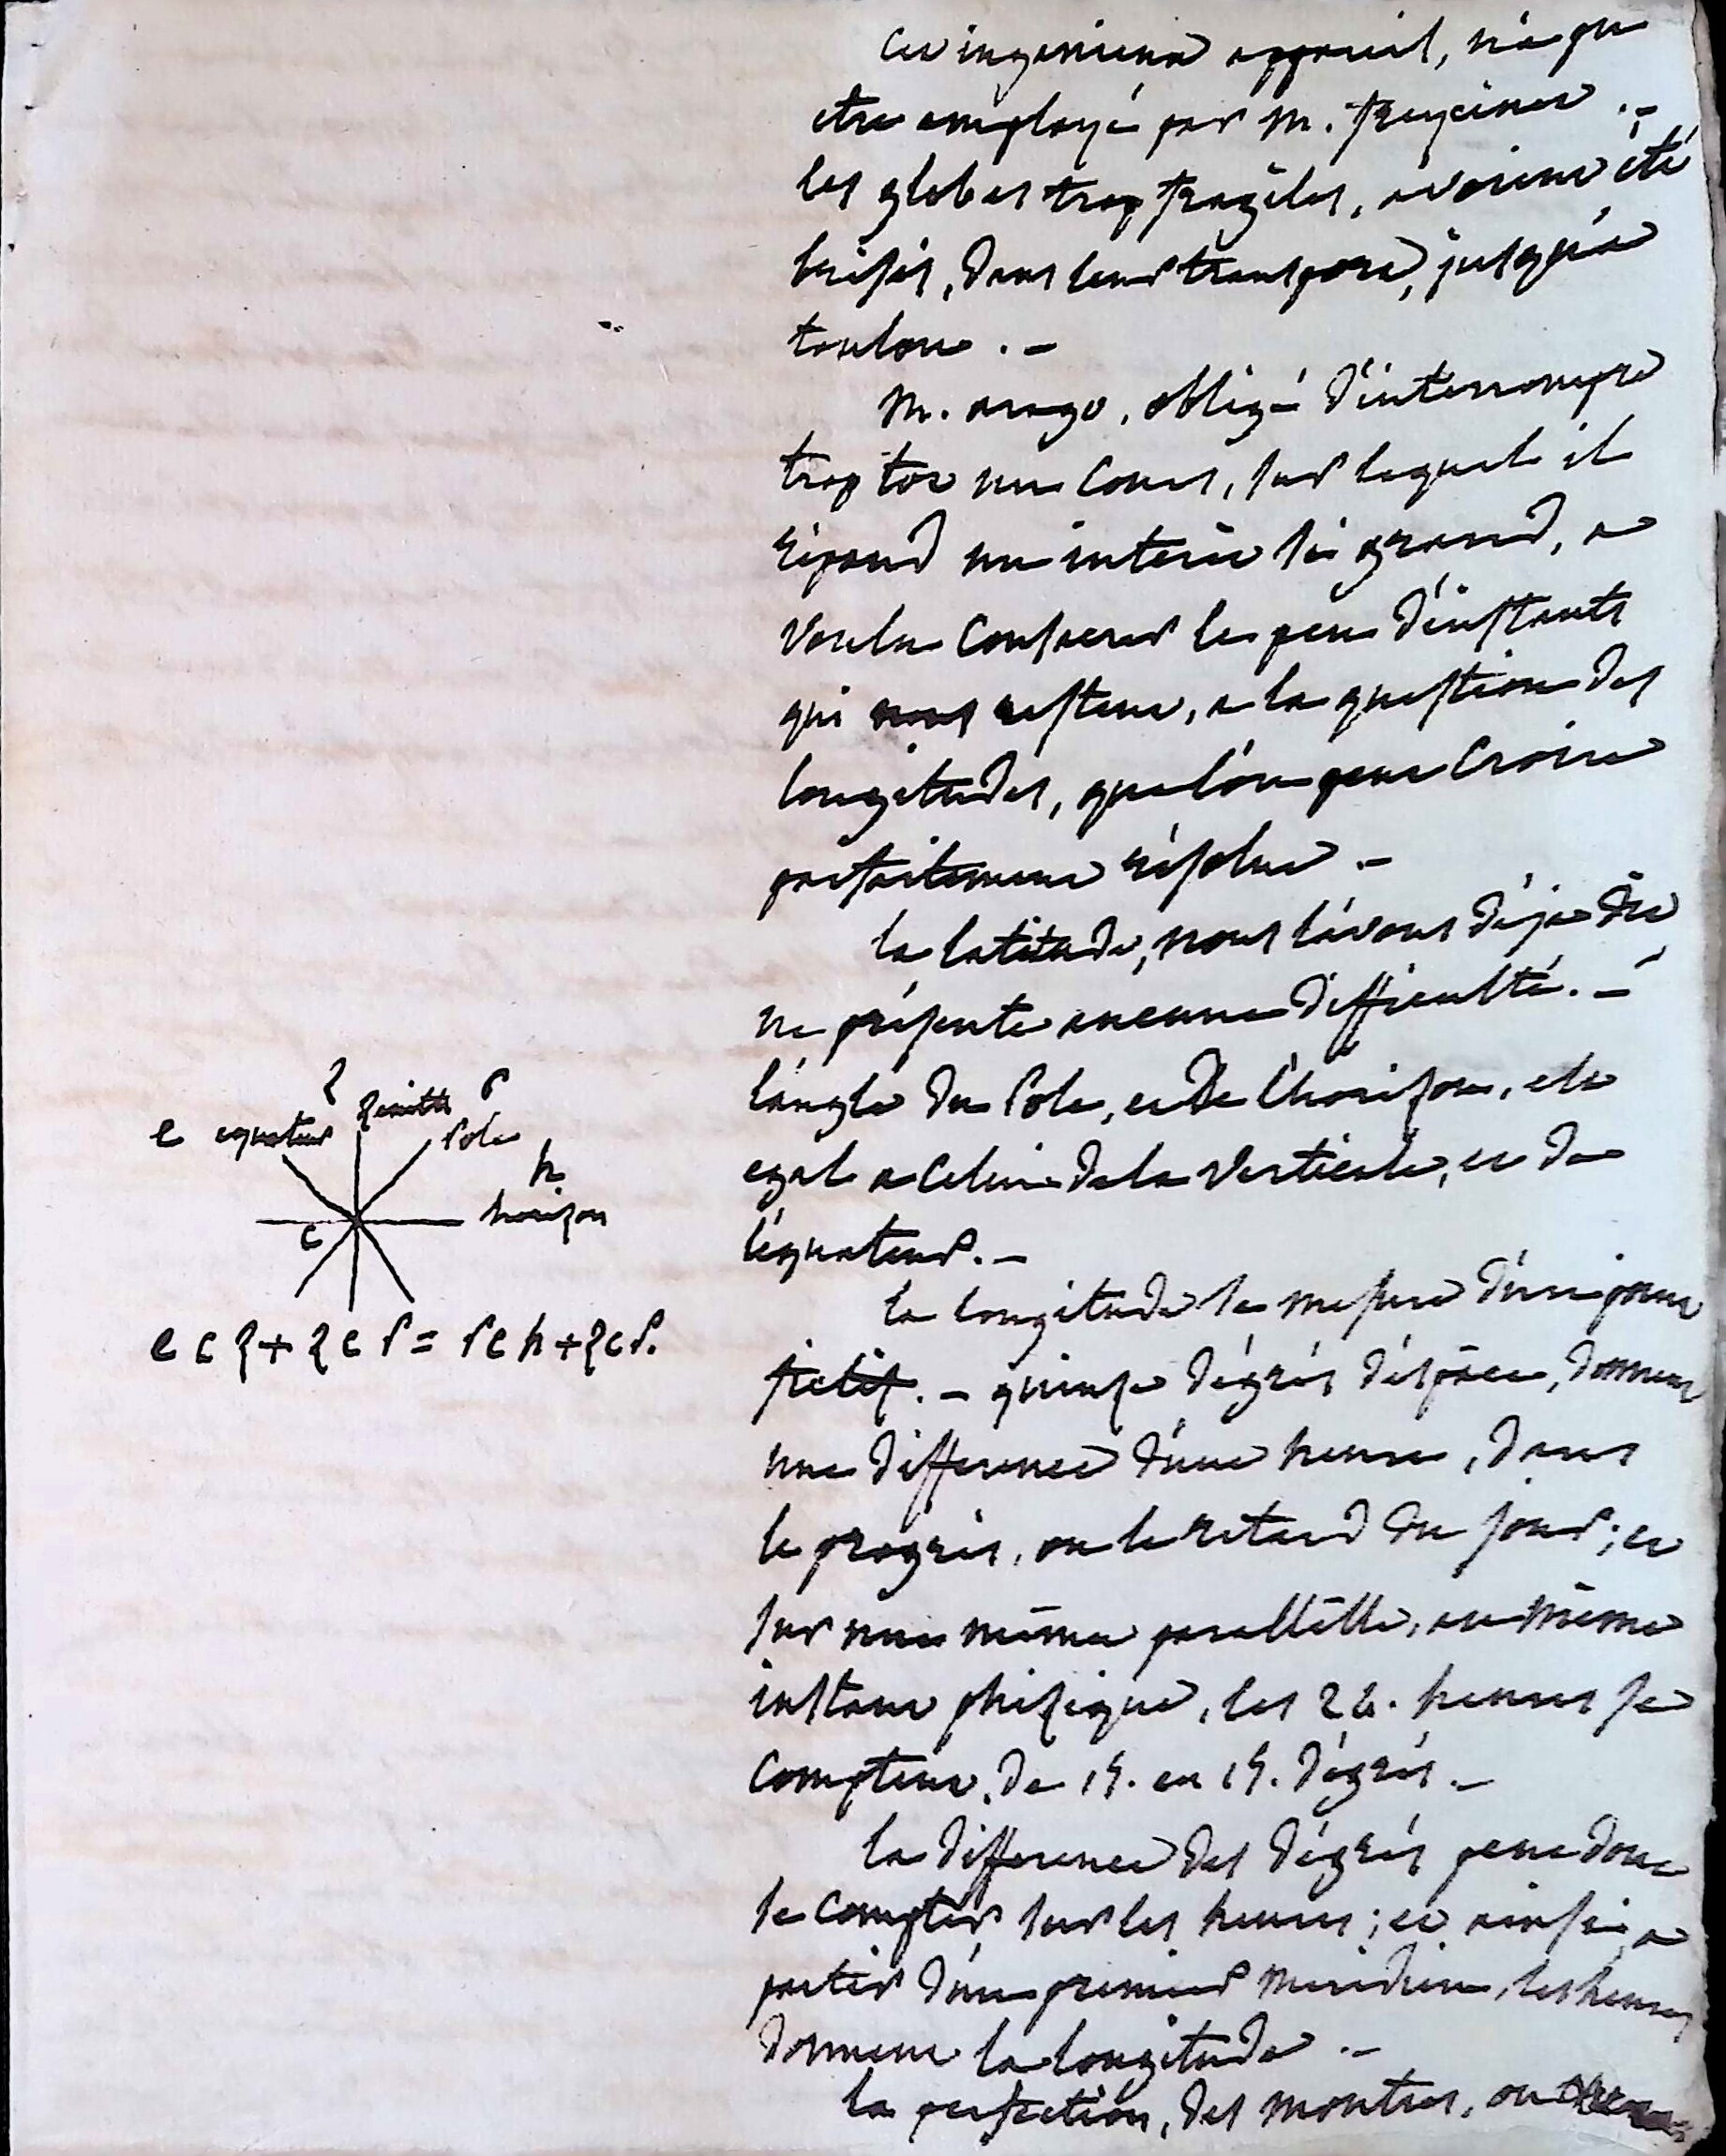 Cet ingenieux appareil, n'a pu
etre employé par M. freycinet. -
les globes trop fragiles, avoient été
brisés, dans leur transport, jusqu'à
toulon. -
M. arago, obligé d'interrompre
trop tot un Cours, sur lequel il
répand un interêt si grand, a
voulu Consacrer le peu d'instants
qui nous restent, a la question des
longitudes, que l'on peut Croire
parfaitement résolue. -
la latitude, nous l'avons déja dit
ne présente aucune difficulté. -
l'angle du Pole, et de l'horison, est
egal a Celui de la Verticale, et de
l'équateur. -
z P
e equateur zenith Pole
h
horizon
C
e c z + z c P = P c h + z c P.
la longitude se mesure d'un point
fictif. - quinze dégrés d'éspace, donnent
une difference d'une heure, dans
le progrès, ou le retard du jour; et
sur une même parallèlle, au même
instant phisique, les 24. heures se
Comptent, de 15. en 15. dégrés. -
la difference des dégrés peut donc
se Compter sur les heures; et ainsi, a
partir d'un premier meridien, les heures
donnent la longitude. -
la perfection, des montres, ou